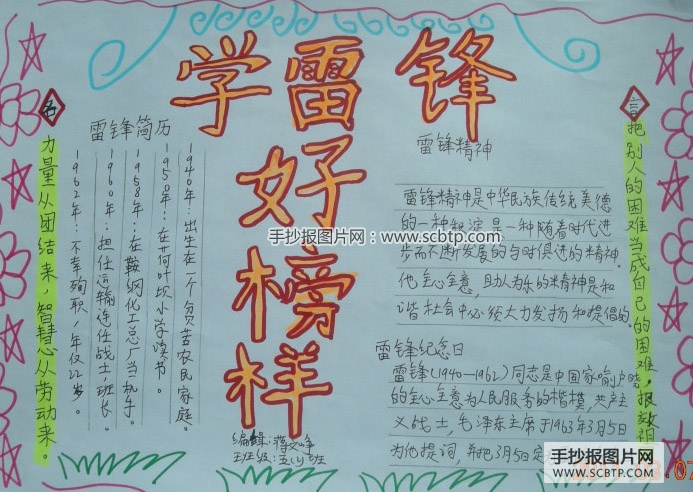 学雷锋
好榜样
名
力量从团结来，智慧从劳动来。
雷锋简历
1940年：出生在一个贫苦农民家庭。
1950年：在荷叶坝小学读书。
1958年：在鞍钢化工总厂当机手。
1960年：担任运输连任战士，班长。
1962年：不幸殉职，年仅22岁。
编辑：蒋文
班级：五(1)班
雷锋精神
雷锋精神是中华民族传统美德
的一种积淀是一种随着时代进
步而不断发展的与时俱进的精神.
他全心全意，助人为乐的精神是和
谐社会中必须大力发扬和提倡的.
雷锋纪念日
雷锋(1940-1962)同志是中国家喻户晓
的全心全意为人民服务的楷模，共产主
义战士，毛泽东主席于1963年3月5日
为他提词，并把3月5定
言
把别人的困难当成自己的困难，报效祖
手抄报图片网：www.scbtp.com
手抄报图片网
WWW.SCBTP.COM